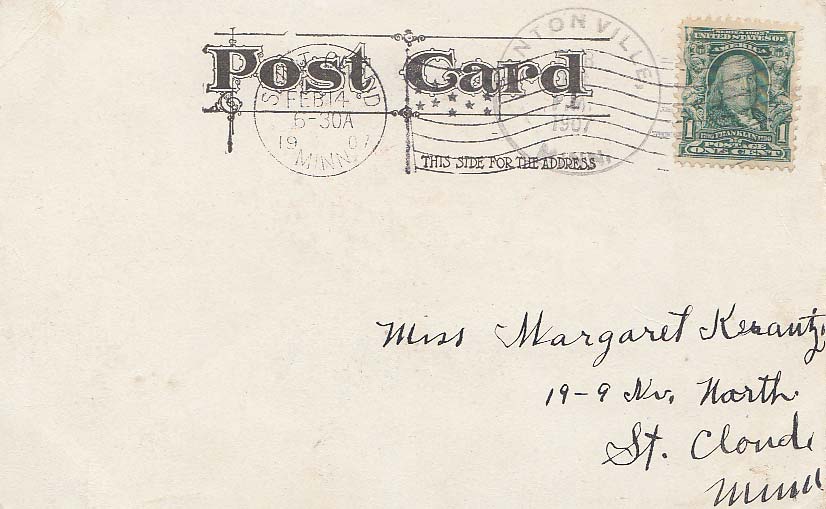 Post Card
THIS SIDE FOR THE ADDRESS
ST. CLOUD
FEB 14
6-30A
1907
MINN.
NTONVILLE,
1907
MINN.
SERIES 1902
UNITED STATES OF
AMERICA
1 FRANKLIN 1
POSTAGE
ONE CENT
Miss Margaret Kerantz,
19-9 Av. North
St. Cloud
Minn